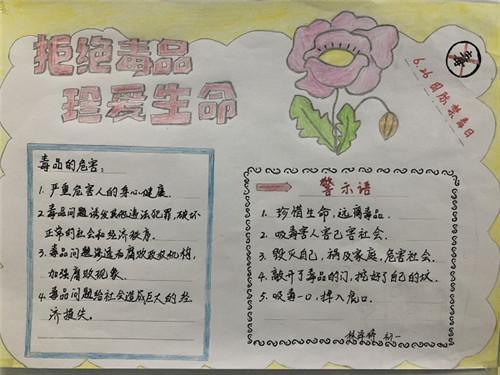 拒绝毒品
珍爱生命
毒
6.26国际禁毒日
毒品的危害:
1. 严重危害人的身心健康.
2. 毒品问题诱发其他违法犯罪,破坏
正常的社会和经济秩序.
3. 毒品问题渗透和腐败政权机构,
加强腐败现象.
4. 毒品问题给社会造成巨大的经
济损失。
警示语
1. 珍惜生命,远离毒品.
2. 吸毒害人害己害社会.
3. 毁灭自己,祸及家庭,危害社会.
4. 敲开了毒品的门,挖好了自己的坟.
5. 吸毒一口,掉入虎口.
初一